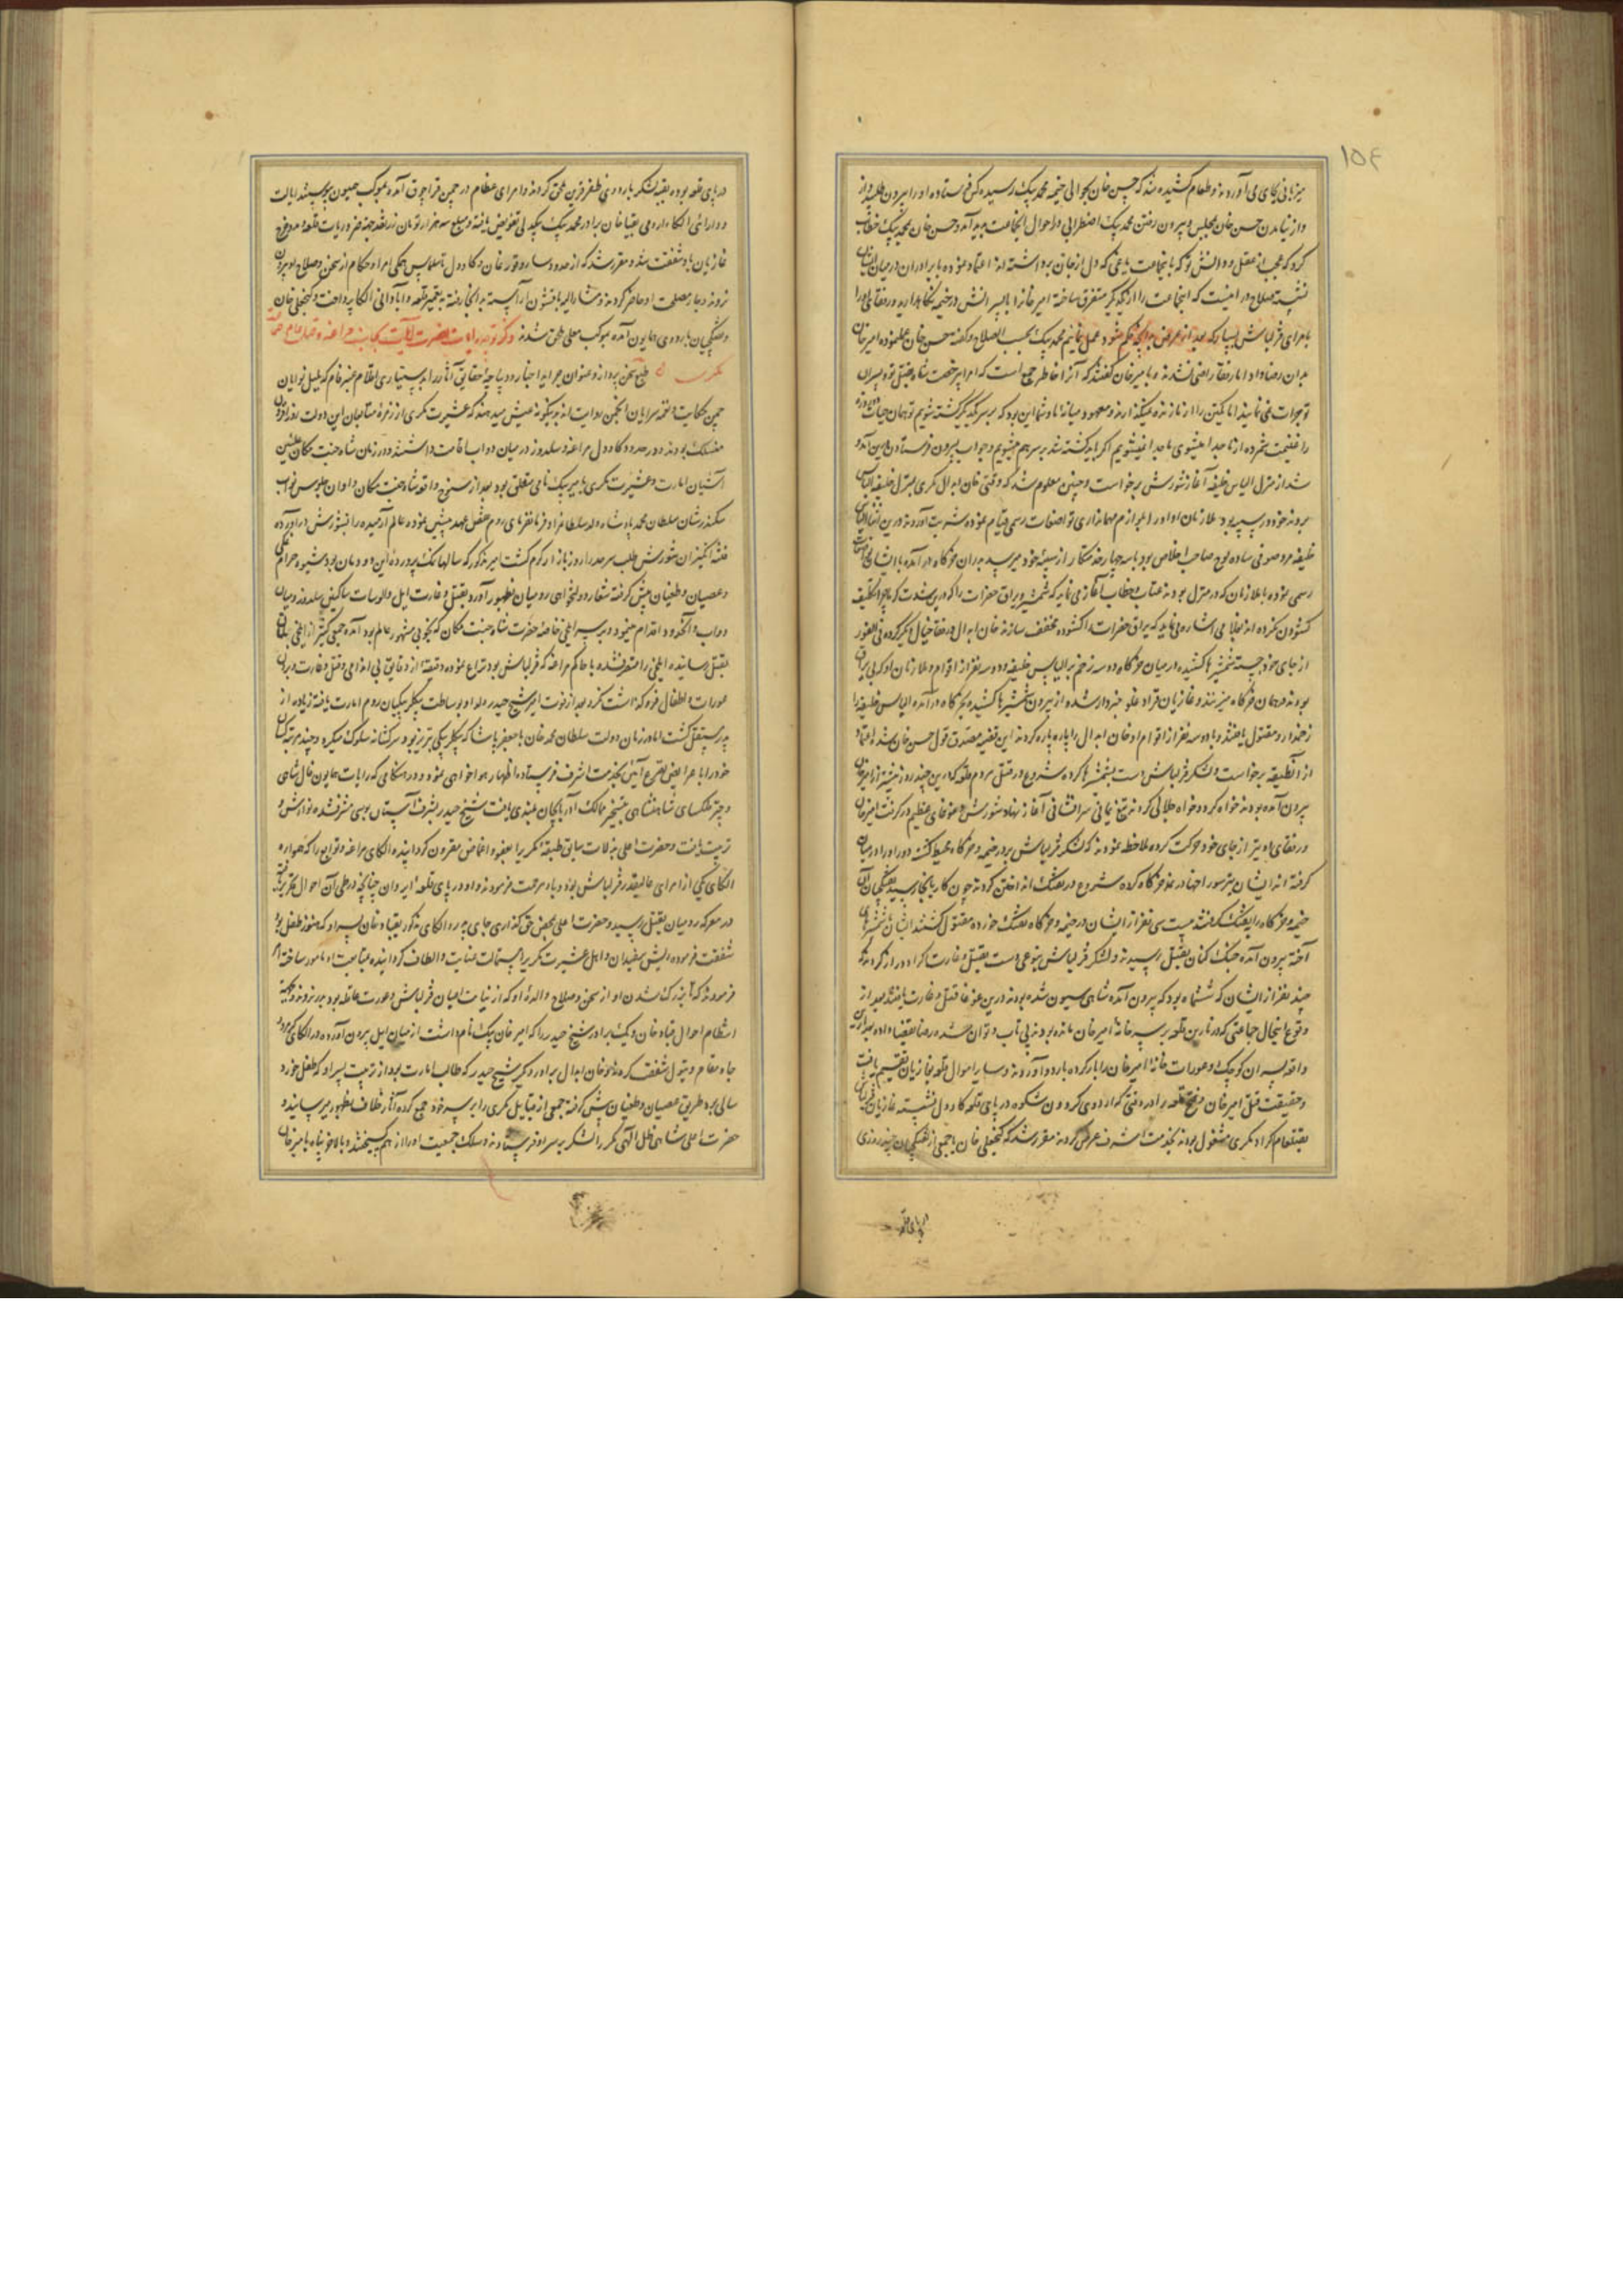 میزبانی بجای می‌آوردند و طعام کشیده شد که حسن خان بحوالی خیمه محمد بیک رسیده کس فرستاده او را بیرون طلبید و از
و از نیامدن حسن خان بمجلس و بیرون رفتن محمد بیک اضطرابی در احوال انجماعت پدید آمد و حسن خان بمحمد بیک خطاب
کرد که عجب از عقل و دانش تو که با جماعت یاغی که دل از جان برداشته اند اعتماد نموده با برادران در میان ایشان
نشسته صلاح در اینست که انجماعت را از یکدیگر متفرق ساخته امیر خان را با پسرانش در خیمه نگاهدارید و رفقای او را
بامرای قزلباش بسپار که بعد از عرض بهر چه حکم شود عمل نمائیم محمد بیک بحسب الصلاح و گفته حسن خان عمل نموده امیر خان
بدان رضا داد اما رفقا راضی نشدند و بامیر خان گفتند که
را غنیمت شمرده از ما جدا میشوی ما جدا نمیشویم اگر باید کشته شد بر سر هم میشویم و جواب بیرون فرستادن همین آمد و
شد از منزل الیاس خلیفه آغاز شورش برخاست و چنین معلوم شد که وقتی خان ابدال مکری بمنزل خلیفه الیاس
بردند خود در سیبه بود ملازمان او او را
خلیفه مرد صوفی ساده لوح صاحب اخلاص بود با سه چهار خدمتکار از سیبه خود میرسد بدان خرگاه در آمده با ایشان
رسمی نموده با ملازمان که در منزل بودند عتاب و خطاب آغاز می نماید که شمشیر و یراق حضرات را
از جای خود جسته شمشیرها کشیده در میان خرگاه دو سه زخم بر الیاس خلیفه و دو سه نفر از اقوام و ملازمان او که بی یراق
بودند در همان خرگاه میزنند و غازیان قراداغلو خبردار شده از بیرون شمشیرها کشیده بخرگاه در آمده الیاس خلیفه را
زخمدار و مقتول یافتند و با دو سه نفر از اقوام او خان ابدال را پاره پاره کردند این قضیه مصدق قول حسن خان شد
از آنطبقه برخاست و لشکر قزلباش دست بشمشیرها کرده شروع در قتل مردم قلعه که درین چند روز پیشتر از امیر خان
بیرون آمده بودند خواه کرد و خواه جلالی کردند تیغ یمانی سرافشانی آغاز نهاد شورش و غوغای عظیم در گرفت امیر خان
و رفقای او نیز از جای خود حرکت کرده ملاحظه نمودند که لشکر قزلباش بدور خیمه و خرگاه محیط گشته
گرفته اند ایشان نیز سوراخها در نمد خرگاه کرده شروع در تفنگ انداختن کردند چون کار بانجا رسید تفنگچیان آن
خیمه و خرگاه را بتفنگ گرفتند بیست سی نفر از ایشان در خیمه و خرگاه تفنگ خورده مقتول گشتند ایشان با شمشیرهای
آخته بیرون آمده جنگ کنان بقتل رسیدند و لشکر قزلباش بنوعی دست بقتل و غارت اکراد دراز کردند که
چند نفر از ایشان که شتماه بود که بیرون آمده شاهی سیون شده بودند درین غوغا قتل و غارت یافتند بعد از
وقوع اینحال جماعتی که در نارین قلعه بر سر خانه امیر خان مانده بودند بی تاب و توان شده رضا بقضا داده بعد از این
واقعه پسران کوچک و عورات خانه امیر خان را بار کرده باردو آوردند و سایر اموال قلعه بغازیان تقسیم یافت
و حقیقت قتل امیر خان و فتح قلعه برادر وقتی که اردوی گردون شکوه در پای قلعه کاودول نشسته غازیان قزلباش
بقتلعام اکراد مکری مشغول بودند بخدمت اشرف عرض کردند مقرر شد که گنجعلی خان با جمعی از تفنگچیان چند روزی
در پای قلعه
در پای قلعه بوده بقیه لشکر باردوی ظفر قرین ملحق گردند و امرای عظام در چمن قراچوق آمده بموکب همیون پیوستند ایالت
و دارائی الکاء ارومی بقبان خان برادر محمد بیک بیکدلی تفویض یافته و مبلغ سه هزار تومان زر نقد جهة ضروریات قلعه و مدد خرج
غازیان باو شفقت شد و مقرر شد که از حدود ساروقورغان و کاودول تا سلماس همگی امرا و حکام از سخن و صلاح او بیرون
نروند و بهر مصلحت او حاضر گردند و مشارالیه با قشون آراسته بدانجا رفته بتعمیر قلعه و آبادانی الکا پرداخت و گنجعلی خان
و تفنگچیان باردوی همایون آمده بموکب معلی ملحق شدند ذکر توجه رایات نصرت آیات بجانب مراغه و قتل عام طایفه
مکری
چمن حکایت و نغمه سرایان انجمن روایت اند بدینگونه میدهند که عشیرت مکری از زمره متابعان این دولت روزافزون
منسلک بودند و در حدود کاودول مراغه و سلدوز و میان دواب اقامت داشتند و در زمان شاه جنت مکان علیین
آشیان امارت و عشیرت مکری بامیر بیک نامی متعلق بود بعد از سنوح واقعه شاه جنت مکان و اوان جلوس نواب
سکندر شان سلطان محمد پادشاه ولد سلطان مراد فرمانفرمای روم نقض عهد پیشین نموده عالم آرمیده را بشورش درآورده
فتنه انگیزان شورش طلب سرحد را روز بازار گرم گشت امیر مذکور که سالها نمک پرورده این دودمان بود شیوه حرام نمکی
و عصیان و طغیان پیش گرفته شعار دولتخواهی رومیان بظهور آورد بقتل و غارت ایل و الوسات ساکنین سلدوز و میان
دواب و آنحدود اقدام نمود و بر سر ایلخی خاصه حضرت شاه جنت مکان که بخوبی مشهور عالم بود آمده جمعی کثیر از ایلخی بانان
بقتل رسانیده ایلخی را متصرف شده با حاکم مراغه که قزلباش بود نزاع نموده دقیقه از دقایق بی اندامی و قتل و غارت و بردن
عورات و اطفال فرو گذاشت نکرد بعد از فوت امیر شیخ حیدر ولد او بوساطت بیکلربیکیان روم امارت یافته زیاده از
پدر مستقل گشت اما در زمان دولت سلطان محمد خان با جعفر پاشا که بیکلربیکی تبریز بود سرکشانه سلوک میکرد و چند مرتبه کسان
خود را با عرایض تضرع آئین بخدمت اشرف فرستاده اظهار هواخواهی نمود و در هنگامی که رایات همایون فال شاهی
و چتر فلکسای شاهنشاهی بتسخیر ممالک آذربایجان بلندی یافت شیخ حیدر بشرف آستان بوسی مشرف شده نوازش و
تربیت یافت و حضرت اعلی زلات سابق طبقه مکری را بعفو و اغماض مقرون گردانیده الکای مراغه و توابع را که همواره
الکای یکی از امرای عالیقدر قزلباش بود باو مرحمت فرمودند و او در پای قلعه ایروان چنانچه در طی آن احوال تحریر یافته
در معرکه رومیان بقتل رسید و حضرت اعلی بمحض حق گذاری جای پدر و الکای مذکور بقباد خان پسر او که هنوز طفل بود
شفقت فرموده ریش سفیدان و اهل عشیرت مکری را باستمالت عنایت و الطاف گردانیده بمتابعت او مامور ساخته امر
فرمودند که تا بزرگ شدن او از سخن و صلاح والده او که از بنات اعیان قزلباش و عورت عاقله بود بیرون نروند و جهة
انتظام احوال قباد خان و یک برادر شیخ حیدر را که امیر خان بیک نام داشت از میان ایل بیرون آورده در الکای
جا و مقام و تیول شفقت کردند و خان ابدال برادر دیگر شیخ حیدر که طالب امارت بود از تربیت پسر او که طفل خورد
سالی بود طریق عصیان و طغیان پیش گرفته جمعی از قبایل مکری را بر سر خود جمع کرده آثار خلاف بظهور میرسانید و
حضرت اعلی شاهی ظل اللهی مکرر لشکر بر سر او فرستادند و سلک جمعیت او را از هم گسیختند و بالاخره پناه بامیر خان